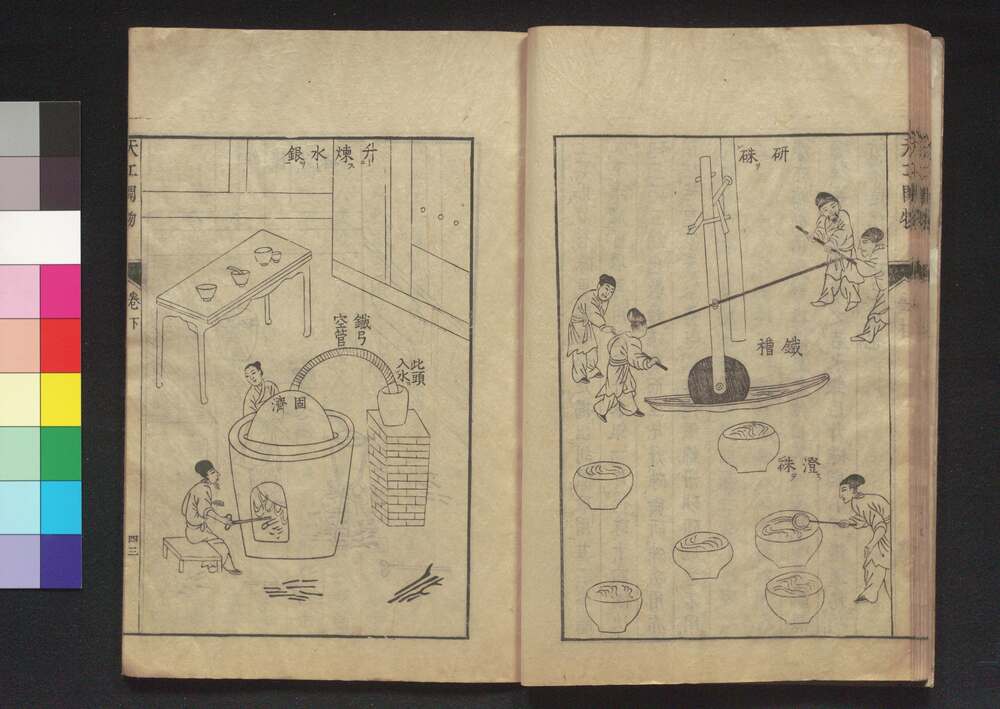 天工開物
研硃ヲ
鐵槽
澄ス硃ヲ
升煉ス水銀ヲ
鐵弓
空管
此頭
入水
固濟
天工開物
卷下
四三